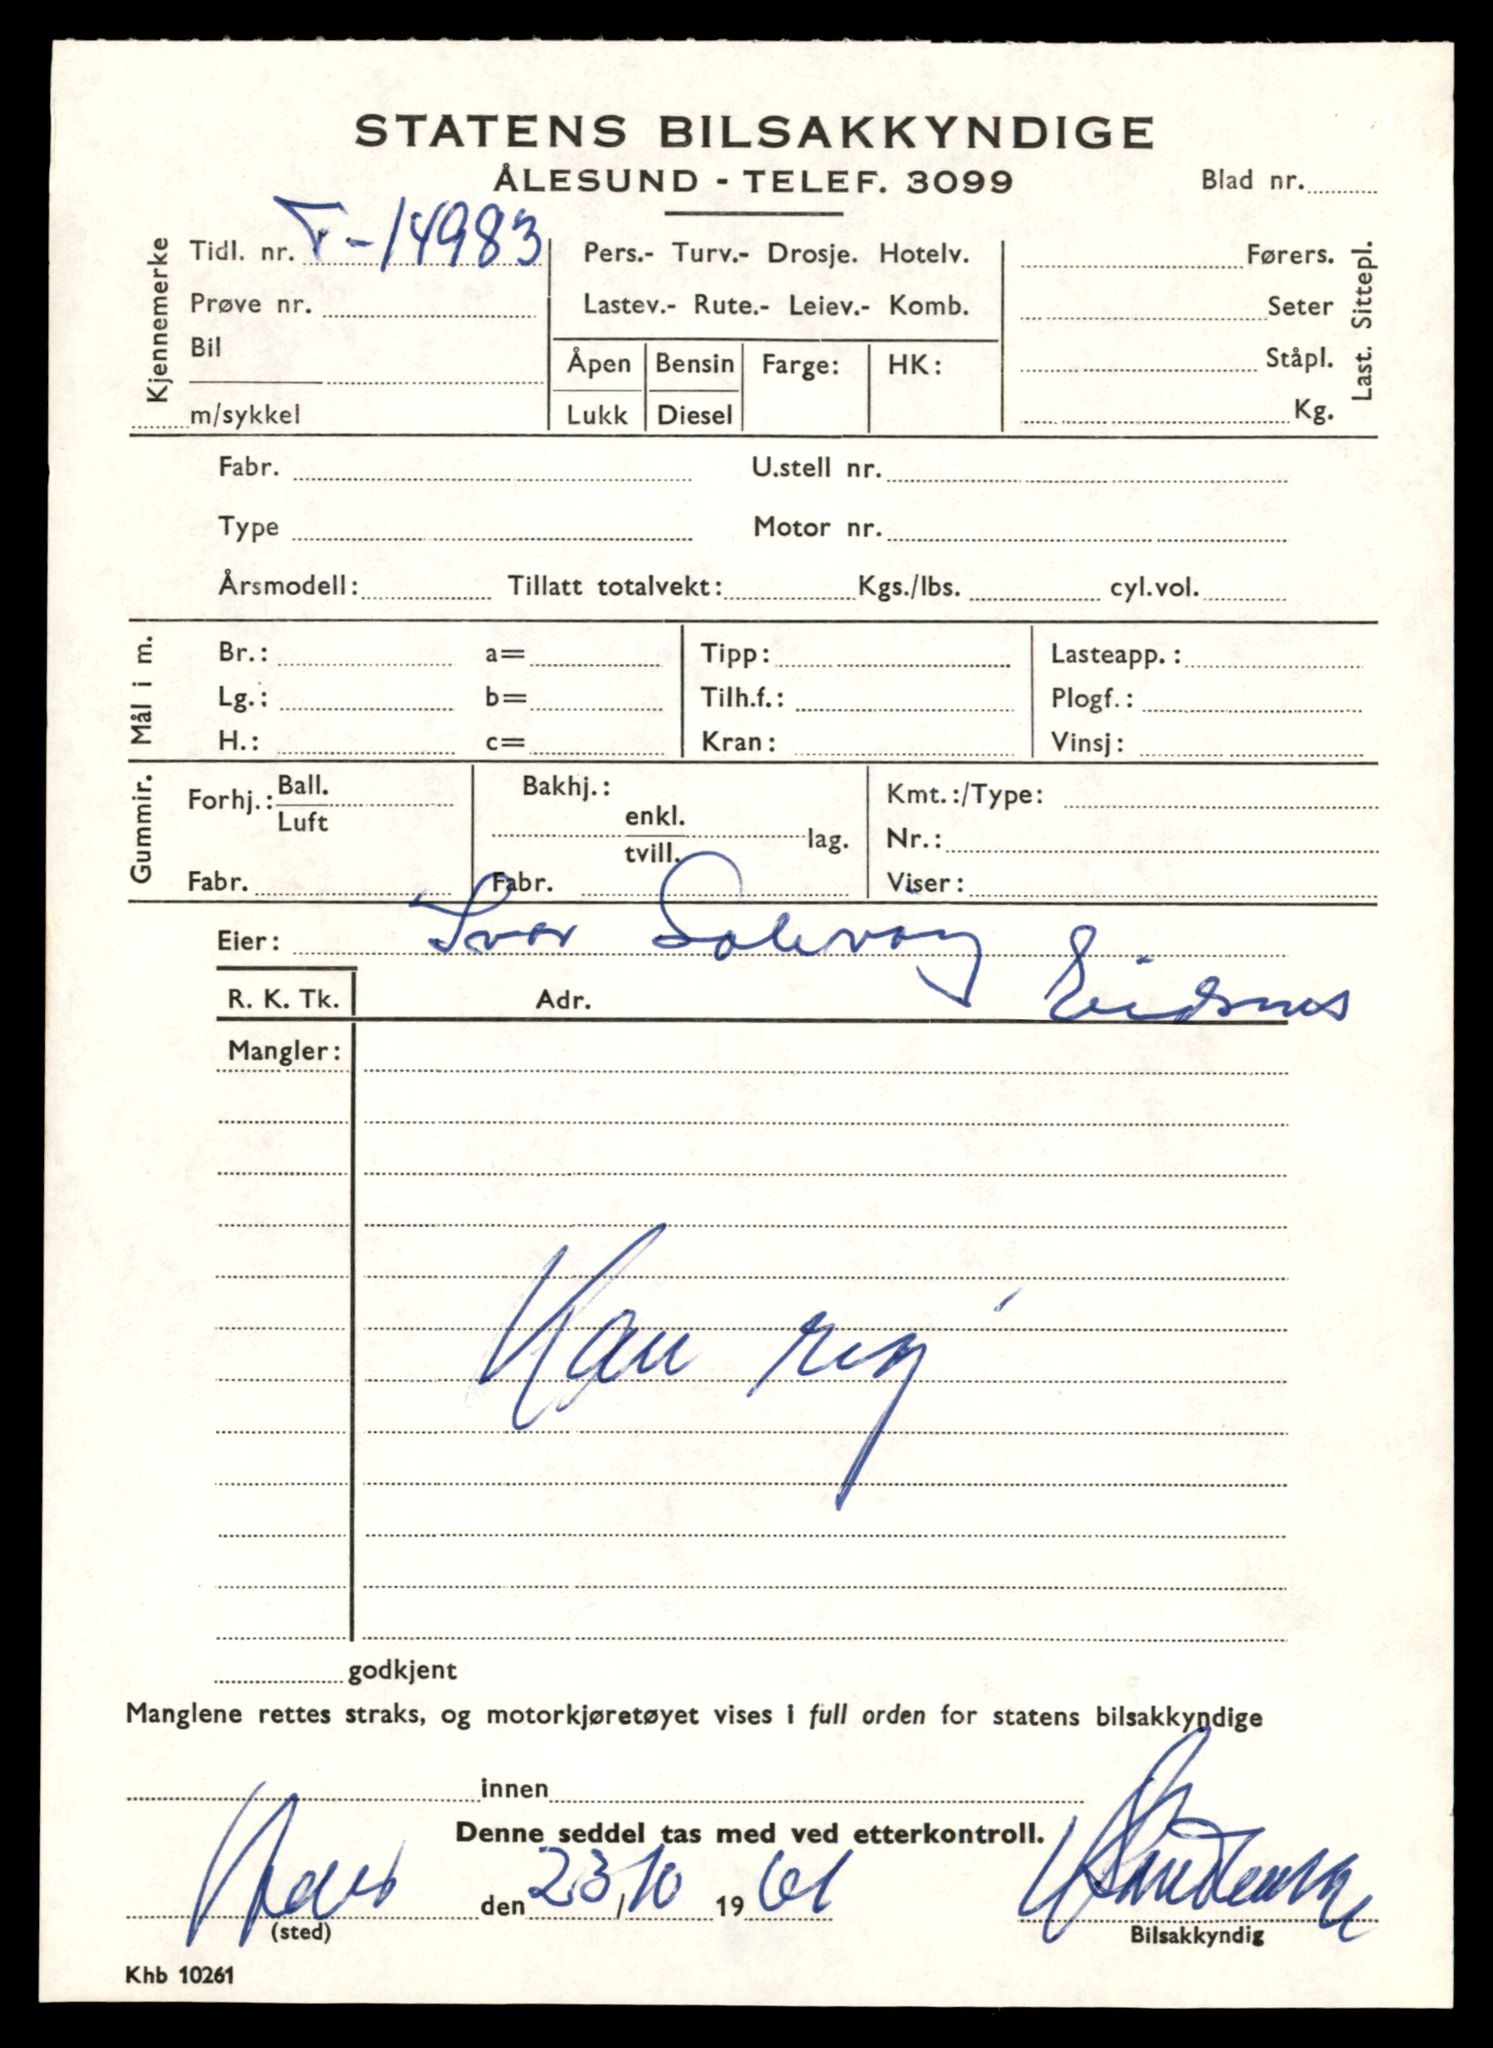 STATENS BILSAKKYNDIGE
ÅLESUND - TELEF. 3099
Blad nr.
Kjennemerke
Tidl. nr. T-14983
Prøve nr.
Bil
m/sykkel
Pers.- Turv.- Drosje. Hotelv.
Lastev.- Rute.- Leiev.- Komb.
Åpen Bensin Farge: HK:
Lukk Diesel
Førers.
Seter
Ståpl.
Kg.
Last. Sittepl.
Fabr. U.stell nr.
Type Motor nr.
Årsmodell: Tillatt totalvekt: Kgs./lbs. cyl.vol.
Mål i m.
Br.: a= Tipp: Lasteapp.:
Lg.: b= Tilh.f.: Plogf.:
H.: c= Kran: Vinsj:
Gummir.
Forhj.: Ball.
Luft
Fabr.
Bakhj.:
enkl.
tvill. lag.
Fabr.
Kmt.:/Type:
Nr.:
Viser:
Eier: Ivar Solevåg
R. K. Tk. Adr. Eidsnes
Mangler:
Kan reg
godkjent
Manglene rettes straks, og motorkjøretøyet vises i full orden for statens bilsakkyndige
innen
Denne seddel tas med ved etterkontroll.
den 23/10 1961
(sted)
Bilsakkyndig
Khb 10261